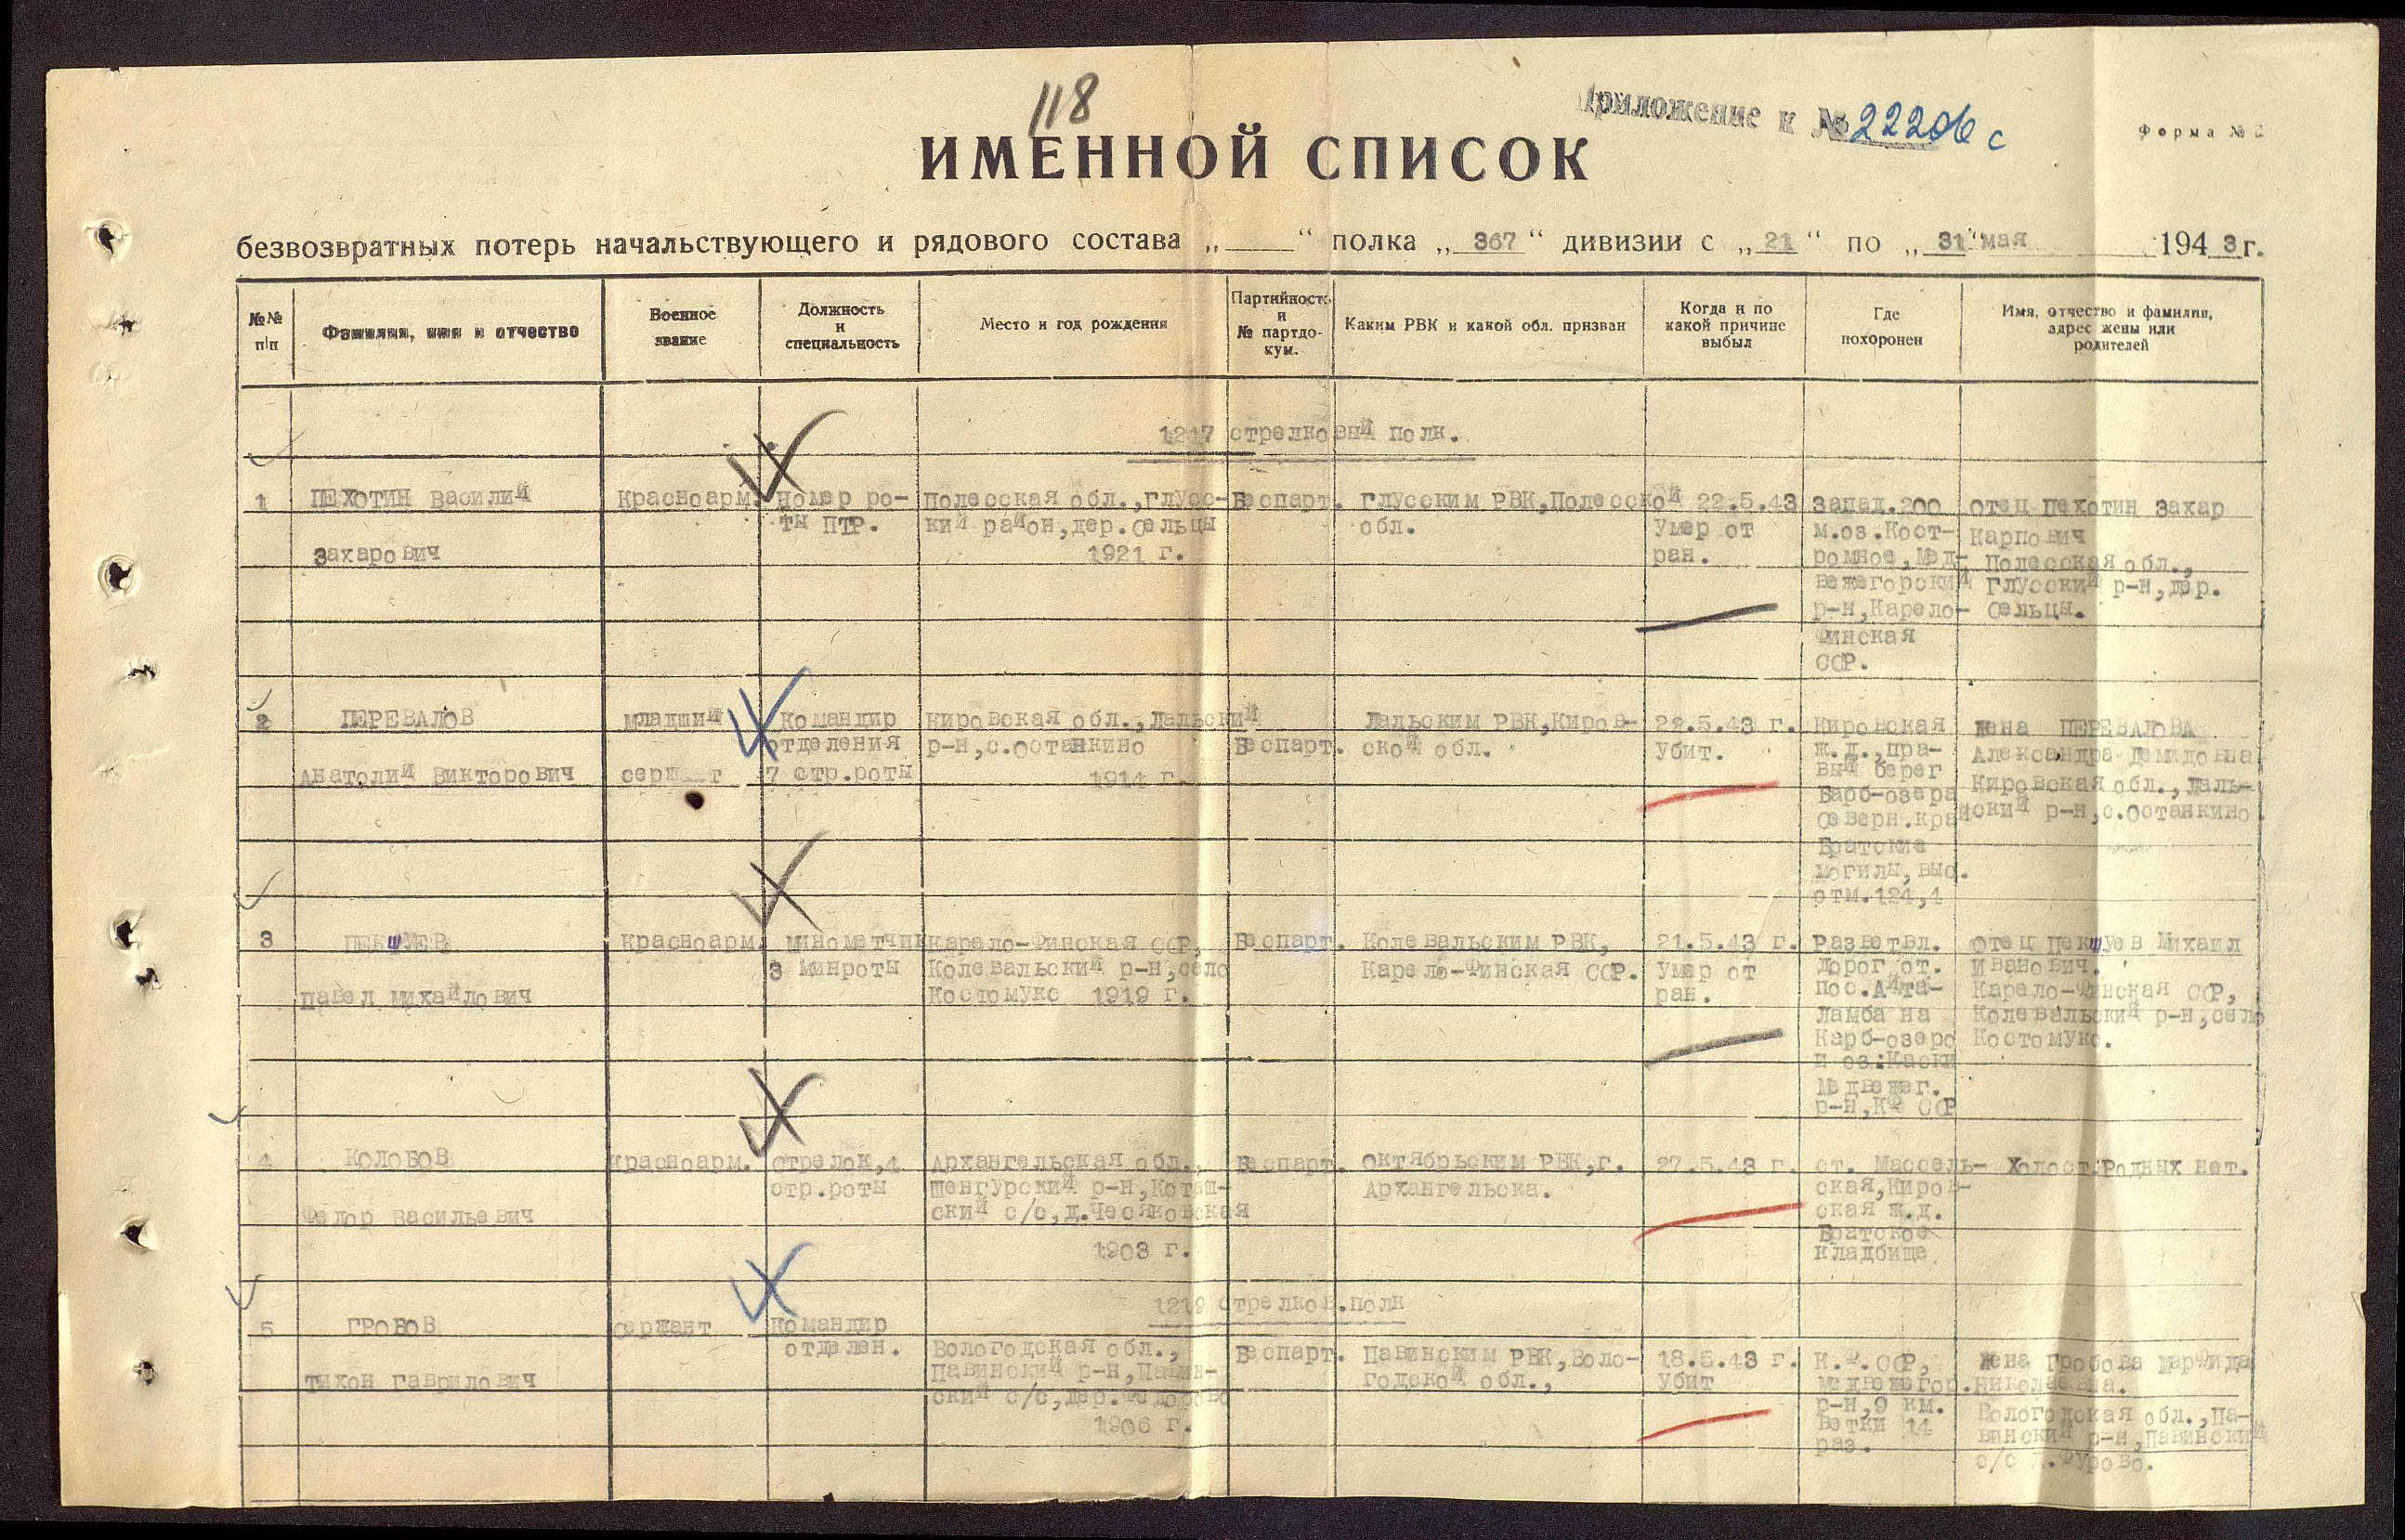 118
Приложение к № 22206 с
Форма № 2
ИМЕННОЙ СПИСОК
безвозвратных потерь начальствующего и рядового состава „ “ полка „ 367 “ дивизии с „ 21 “ по „ 31 “ мая 1943 г.
№№ п/п
Фамилия, имя и отчество
Военное звание
Должность и специальность
Место и год рождения
Партийность и № партдокум.
Каким РВК и какой обл. призван
Когда и по какой причине выбыл
Где похоронен
Имя, отчество и фамилия, адрес жены или родителей
1217 стрелковый полк.
1
ПЕХОТИН Василий
Захарович
Красноарм.
Номер ро-
ты ПТР.
Полесская обл.,Глусс-
кий район,дер.Сельцы
1921 г.
Беспарт.
Глусским РВК,Полесской
обл.
22.5.43
Умер от
ран.
Запад.200
м.оз.Кост-
ромное,Мед-
вежегорский
р-н,Карело-
Финская
ССР.
отец Пехотин Захар
Карпович
Полесская обл.,
Глусский р-н,дер.
Сельцы.
2
ПЕРЕВАЛОВ
Анатолий Викторович
младший
сержант
Командир
отделения
7 стр.роты
Кировская обл.,Лальский
р-н,с.Останкино
1914 г.
Беспарт.
Лальским РВК,Киров-
ской обл.
22.5.43 г.
Убит.
Кировская
ж.д.,пра-
вый берег
Барб-озера
Северн.край
Братские
могилы,выс.
отм.124,4
жена ПЕРЕВАЛОВА
Александра Демидовна
Кировская обл.,Лаль-
ский р-н,с.Останкино
3
ПЕКШУЕВ
Павел Михайлович
Красноарм.
минометчик
3 минроты
Карело-Финская ССР,
Колевальский р-н,село
Костомукс 1919 г.
Беспарт.
Колевальским РВК,
Карело-Финская ССР.
21.5.43 г.
Умер от
ран.
Разветвл.
дорог от.
пос.Айта-
ламба на
Карб-озеро
и оз.Каски
Медвежег.
р-н,КФ ССР
отец Пекшуев Михаил
Иванович.
Карело-Финская ССР,
Колевальский р-н,село
Костомукс.
4
КОЛОБОВ
Федор Васильевич
Красноарм.
стрелок,4
стр.роты
Архангельская обл.,
Шенгурский р-н,Коташ-
ский с/с,д.Чесяковская
1903 г.
Беспарт.
Октябрьским РВК,г.
Архангельска.
27.5.43 г.
ст. Массель-
ская,Киров-
ская ж.д.
Братское
кладбище
Холост.Родных нет.
1219 стрелков.полк
5
ГРОБОВ
Тихон Гаврилович
сержант
Командир
отделен.
Вологодская обл.,
Павинский р-н,Павин-
ский с/с,дер.Федорово
1906 г.
Беспарт.
Павинским РВК,Воло-
годской обл.,
18.5.43 г.
Убит
К.Ф.ССР,
Медвежегор.
р-н,9 км.
Ветки 14
раз.
жена Гробова Марфида
Николаевна.
Вологодская обл.,Па-
винский р-н,Павинский
с/с д.Фурово.